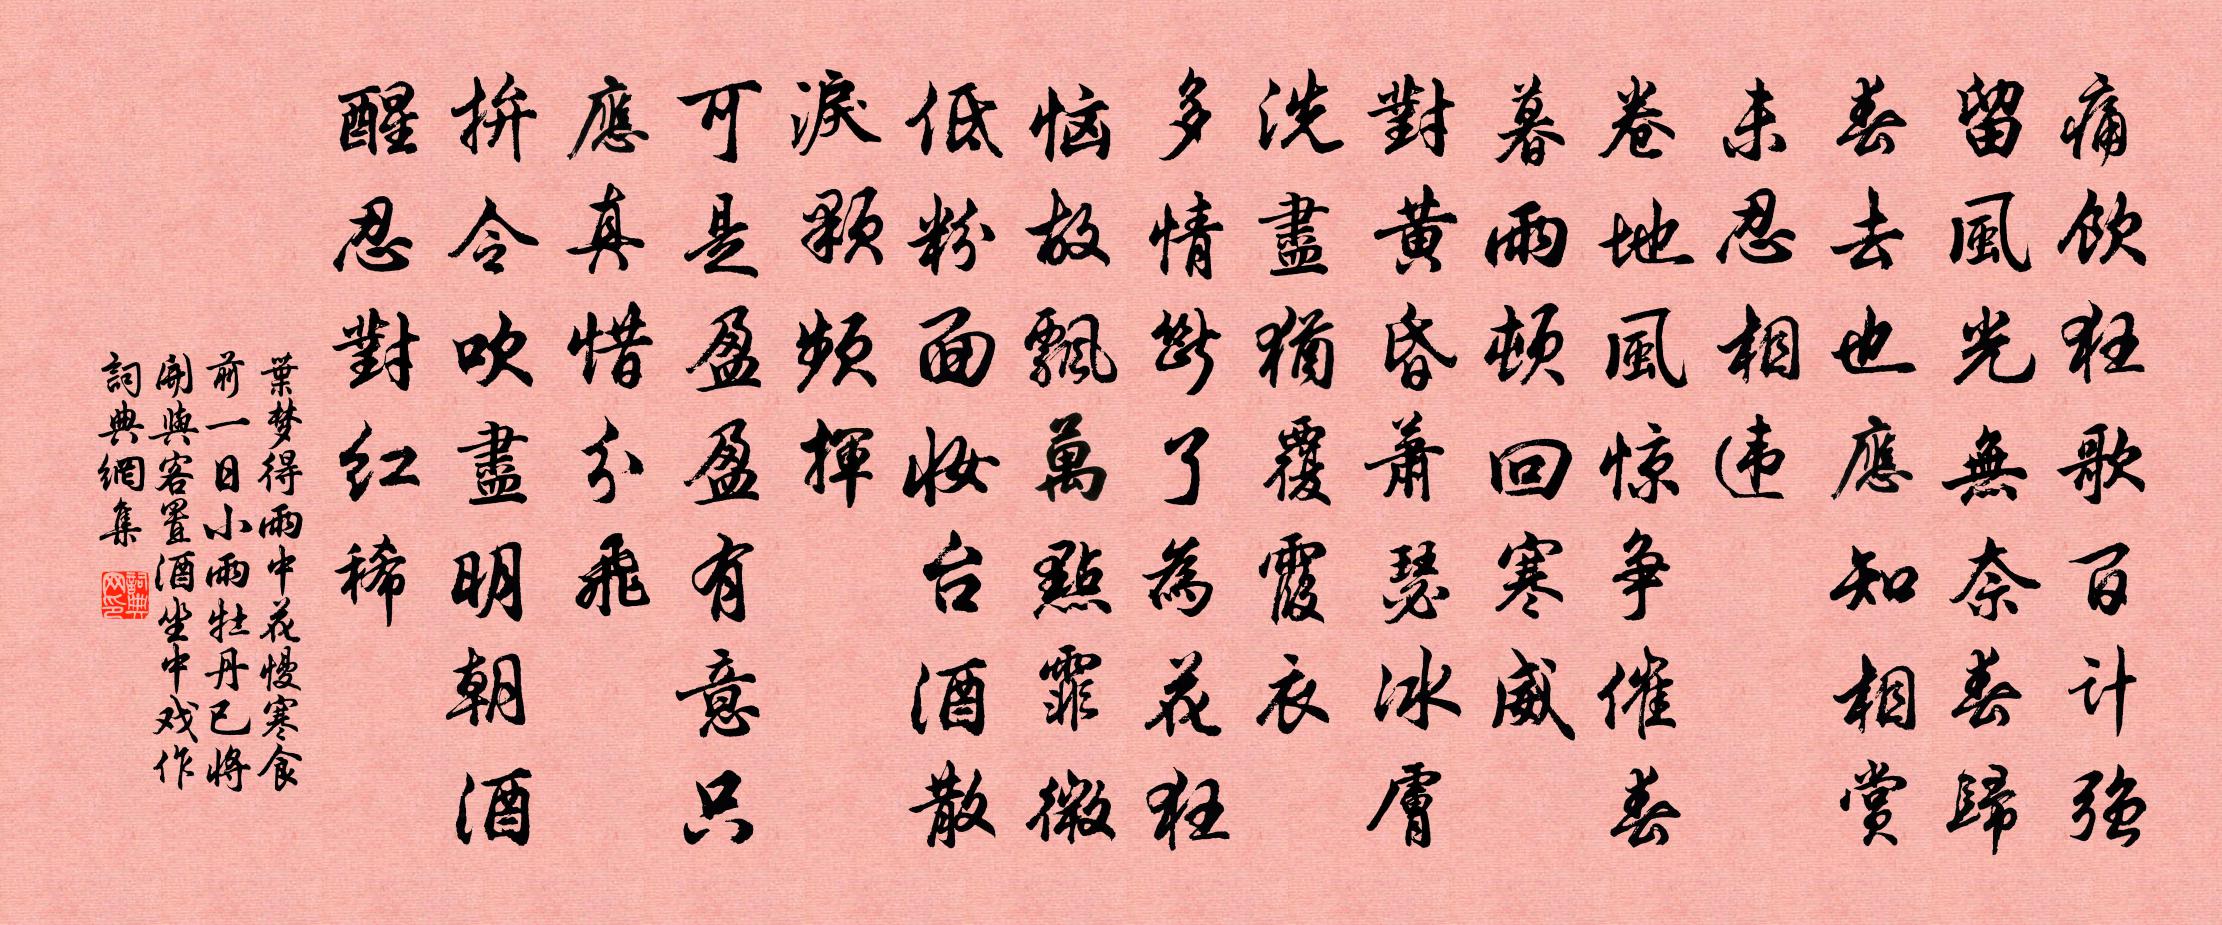 痛飲狂歌百计强
留風光無奈春歸
春去也應知相賞
未忍相违
卷地風惊争催春
暮雨頓回寒威
對黄昏萧瑟冰膚
洗盡猶覆霞衣
多情斷了為花狂
恼故飄萬點霏微
低粉面妆台酒散
淚顆频揮
可是盈盈有意只
應真惜分飛
拚令吹盡明朝酒
醒忍對红稀
葉梦得雨中花慢寒食
前一日小雨牡丹已將
開與客置酒坐中戏作
詞典網集
詞典网印